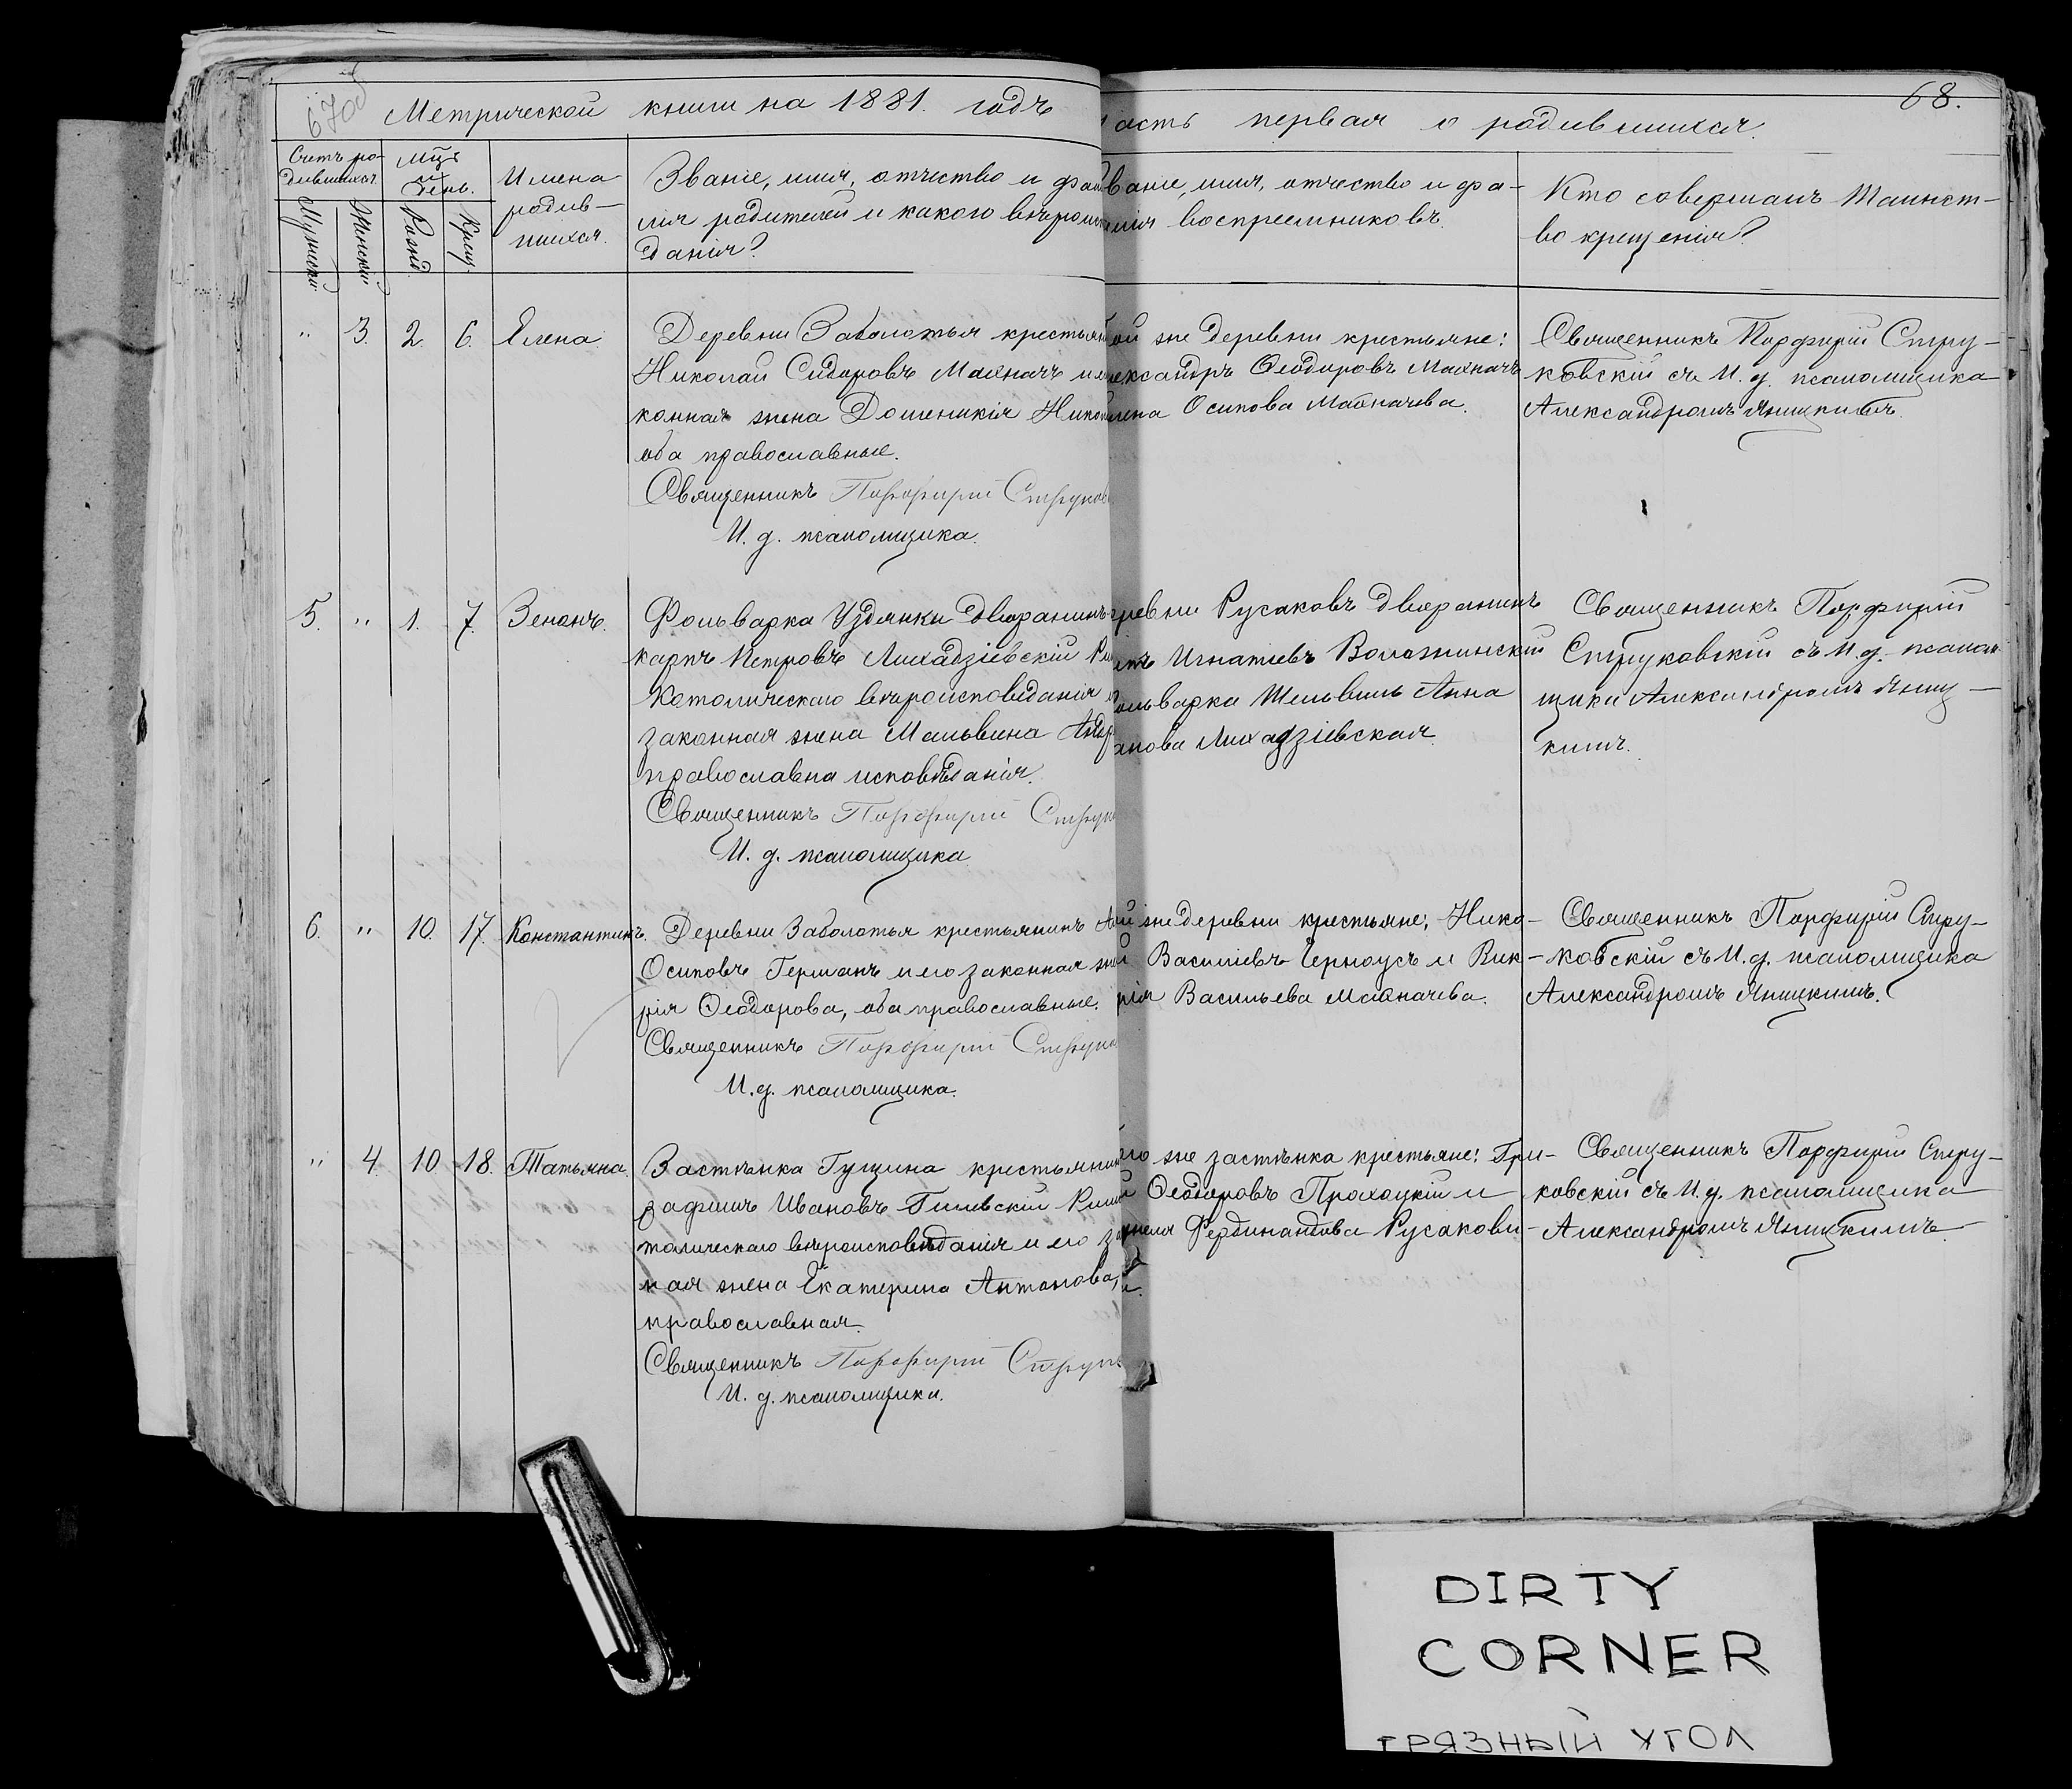 67об
Метрической книги на 1881. годъ
68.
асть первая о родившихся.
Счетъ ро-
дившихся.
Мужски
Женски
Мцъ
и
день.
Рожд.
Крещ.
Имена
родив-
шихся.
Званіе, имя, отчество и фами
лія родителей и какого вѣроиспо
данія?
ваніе, имя, отчество и фа-
илія воспреемниковъ.
Кто совершалъ Таинст-
во крещенія?
" 3. 2. 6. Елена.
Деревни Заболотья крестьян
Николай Сидоровъ Махначъ и
конная жена Доменикія Никол
оба православные.
Священникъ Порфирій Струков
И. д. псаломщика.
ой же деревни крестьяне:
лександръ Ѳеодоровъ Махначъ
лена Осипова Махначева.
Священникъ Порфирій Стру-
ковскій съ И. д. псаломщика
Александромъ Яницкимъ.
5. " 1. 7. Зенонъ.
Фольварка Уздянки дворянинъ
карпъ Петровъ Лихадзіевскій Рим
Католическаго вѣроисповѣданія и
законная жена Мальвина Андр
православна исповѣданія.
Священникъ Порфирій Струко
И. д. псаломщика
ревни Русаковъ дворянинъ
Игнатіевъ Воложинскій
ольварка Шельвиль Анна
анова Лихадзіевская.
Священникъ Порфирій
Струковскій съ И. д. псалом
щика Александромъ Яниц-
кимъ.
6. " 10. 17. Константинъ.
Деревни Заболотья крестьянинъ
Осиповъ Германъ и его законная жен
рія Ѳеодорова, оба православные.
Священникъ Порфирій Струко
И. д. псаломщика.
й же деревни крестьяне: Нико-
й Василіевъ Черноусъ и Вик-
рія Васильева Махначева.
Священникъ Порфирій Стру-
ковскій съ И. д. псаломщика
Александромъ Яницкимъ.
" 4. 10. 18. Татьяна.
Застѣнка Гущина крестьянин
зафимъ Ивановъ Гилевскій Рим
толическаго вѣроисповѣданія и его за
ная жена Екатерина Антонова,
православная.
Священникъ Порфирій Струк
И. д. псаломщика.
го же застѣнка крестьяне: Гри-
й Ѳеодоровъ Прохоцкій и
Фердинандова Русакови-
Священникъ Порфирій Стру-
ковскій съ И. д. псаломщика
Александромъ Яницкимъ.
DIRTY
CORNER
ГРЯЗНЫЙ УГОЛ